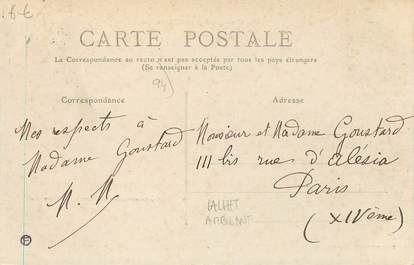 8€
CARTE POSTALE
La Correspondance au recto n'est pas acceptée par tous les pays étrangers
(Se renseigner à la Poste)
94)
Correspondance
Adresse
Mes respects à
Madame Goustard
M. M
Monsieur et Madame Goustard
111 bis rue d'Alésia
Paris
(XIVème)
CACHET
AMBULANT